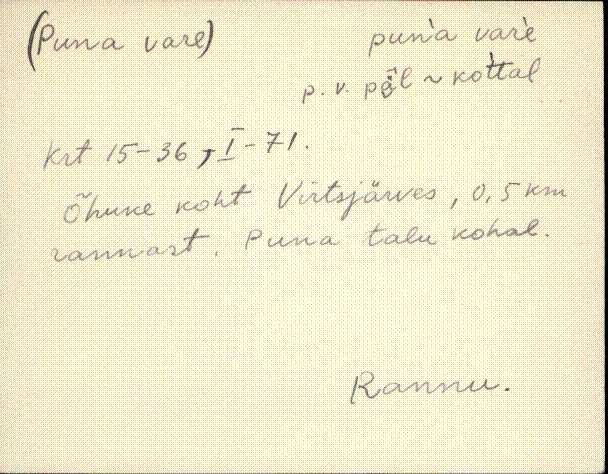 (Puna vare) puǹa vaŕe
p. v. pǟl ~ kot̀tal
Krt 15-36, I-71.
Õhuke koht Virtsjärves, 0,5 km
rannast. Puna talu kohal.
Rannu.